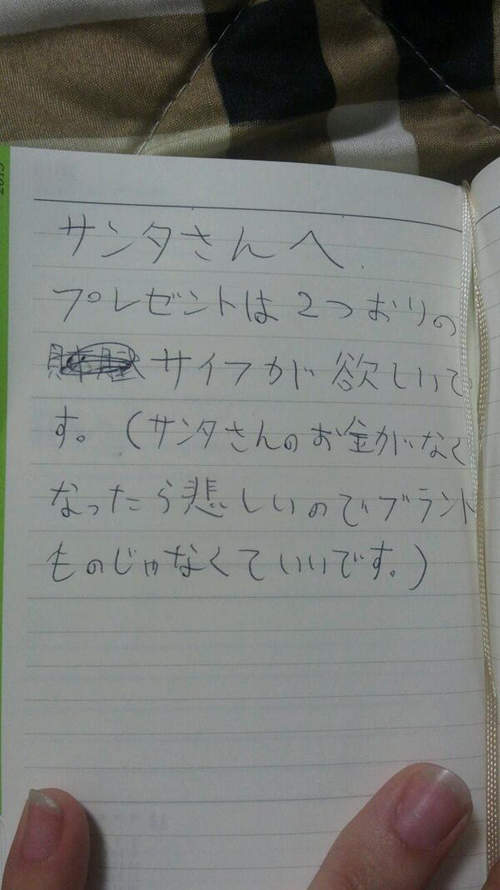 サンタさんへ
プレゼントは2つおりの
サイフが欲しいで
す。(サンタさんのお金がなく
なったら悲しいのでブランド
ものじゃなくていいです。)